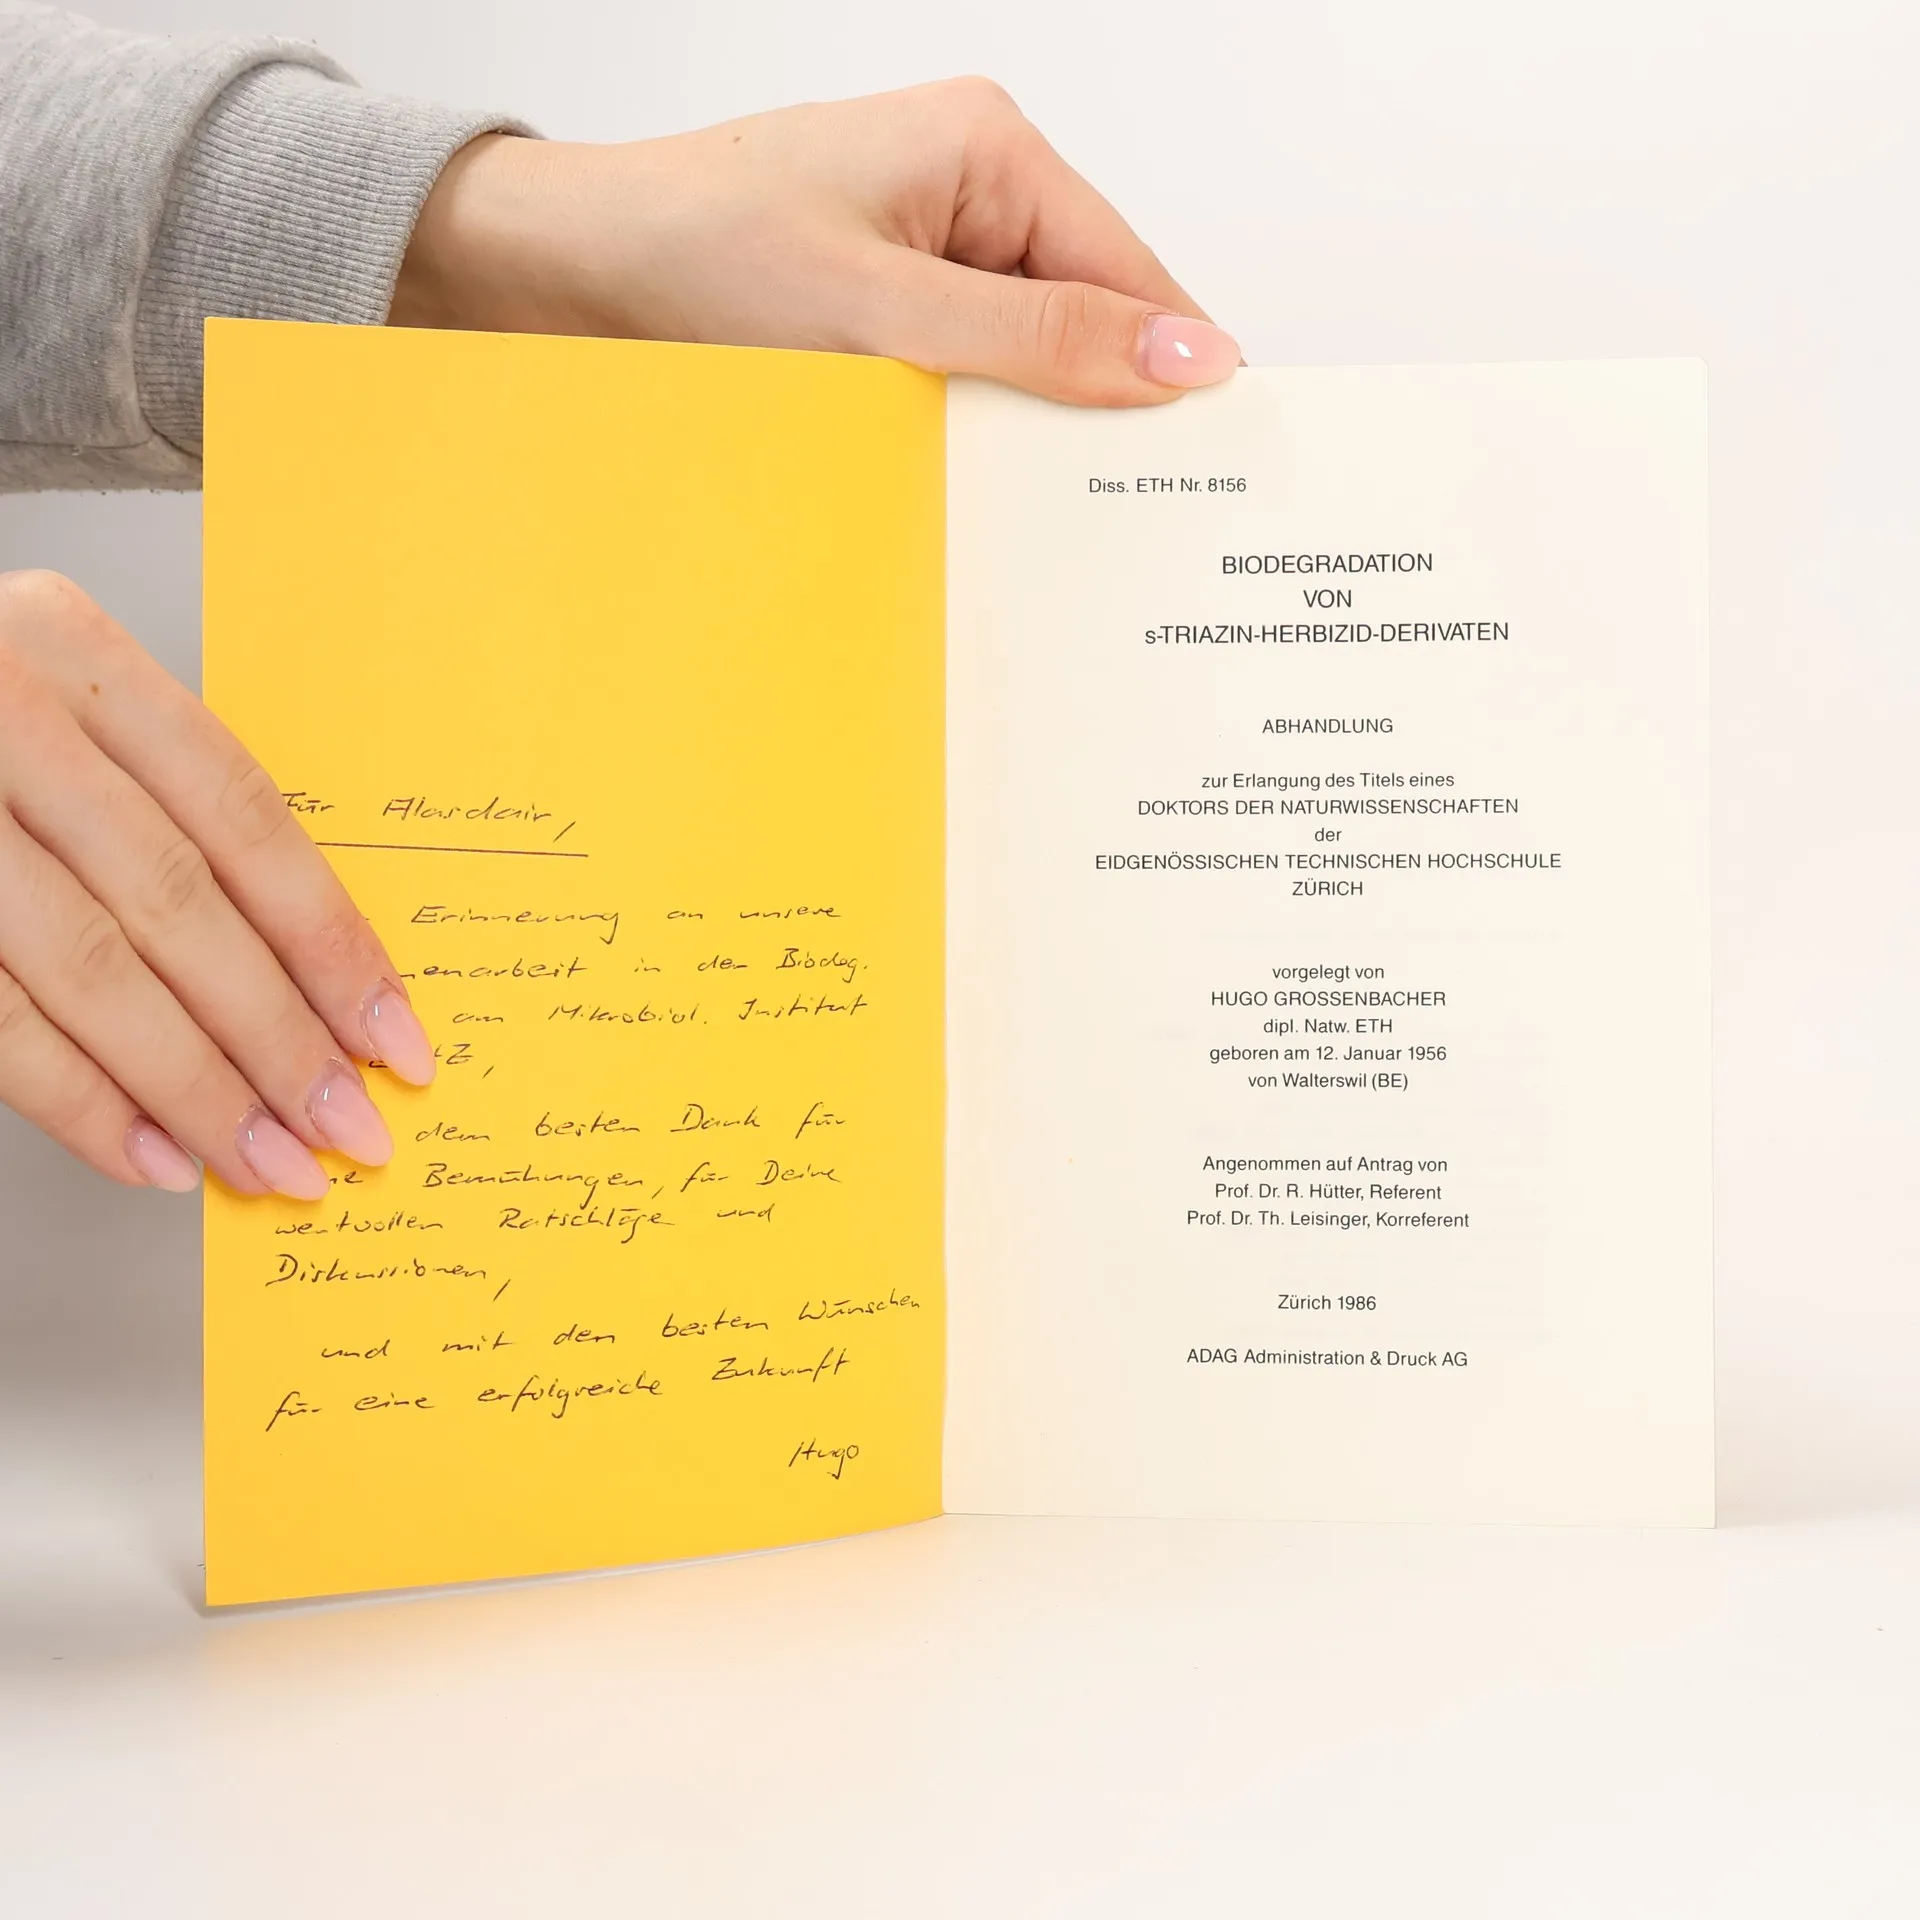 Für Alasdair,
Erinnerung an unsere
menarbeit in der Biodeg.
am Mikrobiol. Institut
dem besten Dank für
Bemühungen, für Deine
wertvollen Ratschläge und
Diskussionen,
und mit den besten Wünschen
für eine erfolgreiche Zukunft
Hugo
Diss. ETH Nr. 8156
BIODEGRADATION
VON
s-TRIAZIN-HERBIZID-DERIVATEN
ABHANDLUNG
zur Erlangung des Titels eines
DOKTORS DER NATURWISSENSCHAFTEN
der
EIDGENÖSSISCHEN TECHNISCHEN HOCHSCHULE
ZÜRICH
vorgelegt von
HUGO GROSSENBACHER
dipl. Natw. ETH
geboren am 12. Januar 1956
von Walterswil (BE)
Angenommen auf Antrag von
Prof. Dr. R. Hütter, Referent
Prof. Dr. Th. Leisinger, Korreferent
Zürich 1986
ADAG Administration & Druck AG